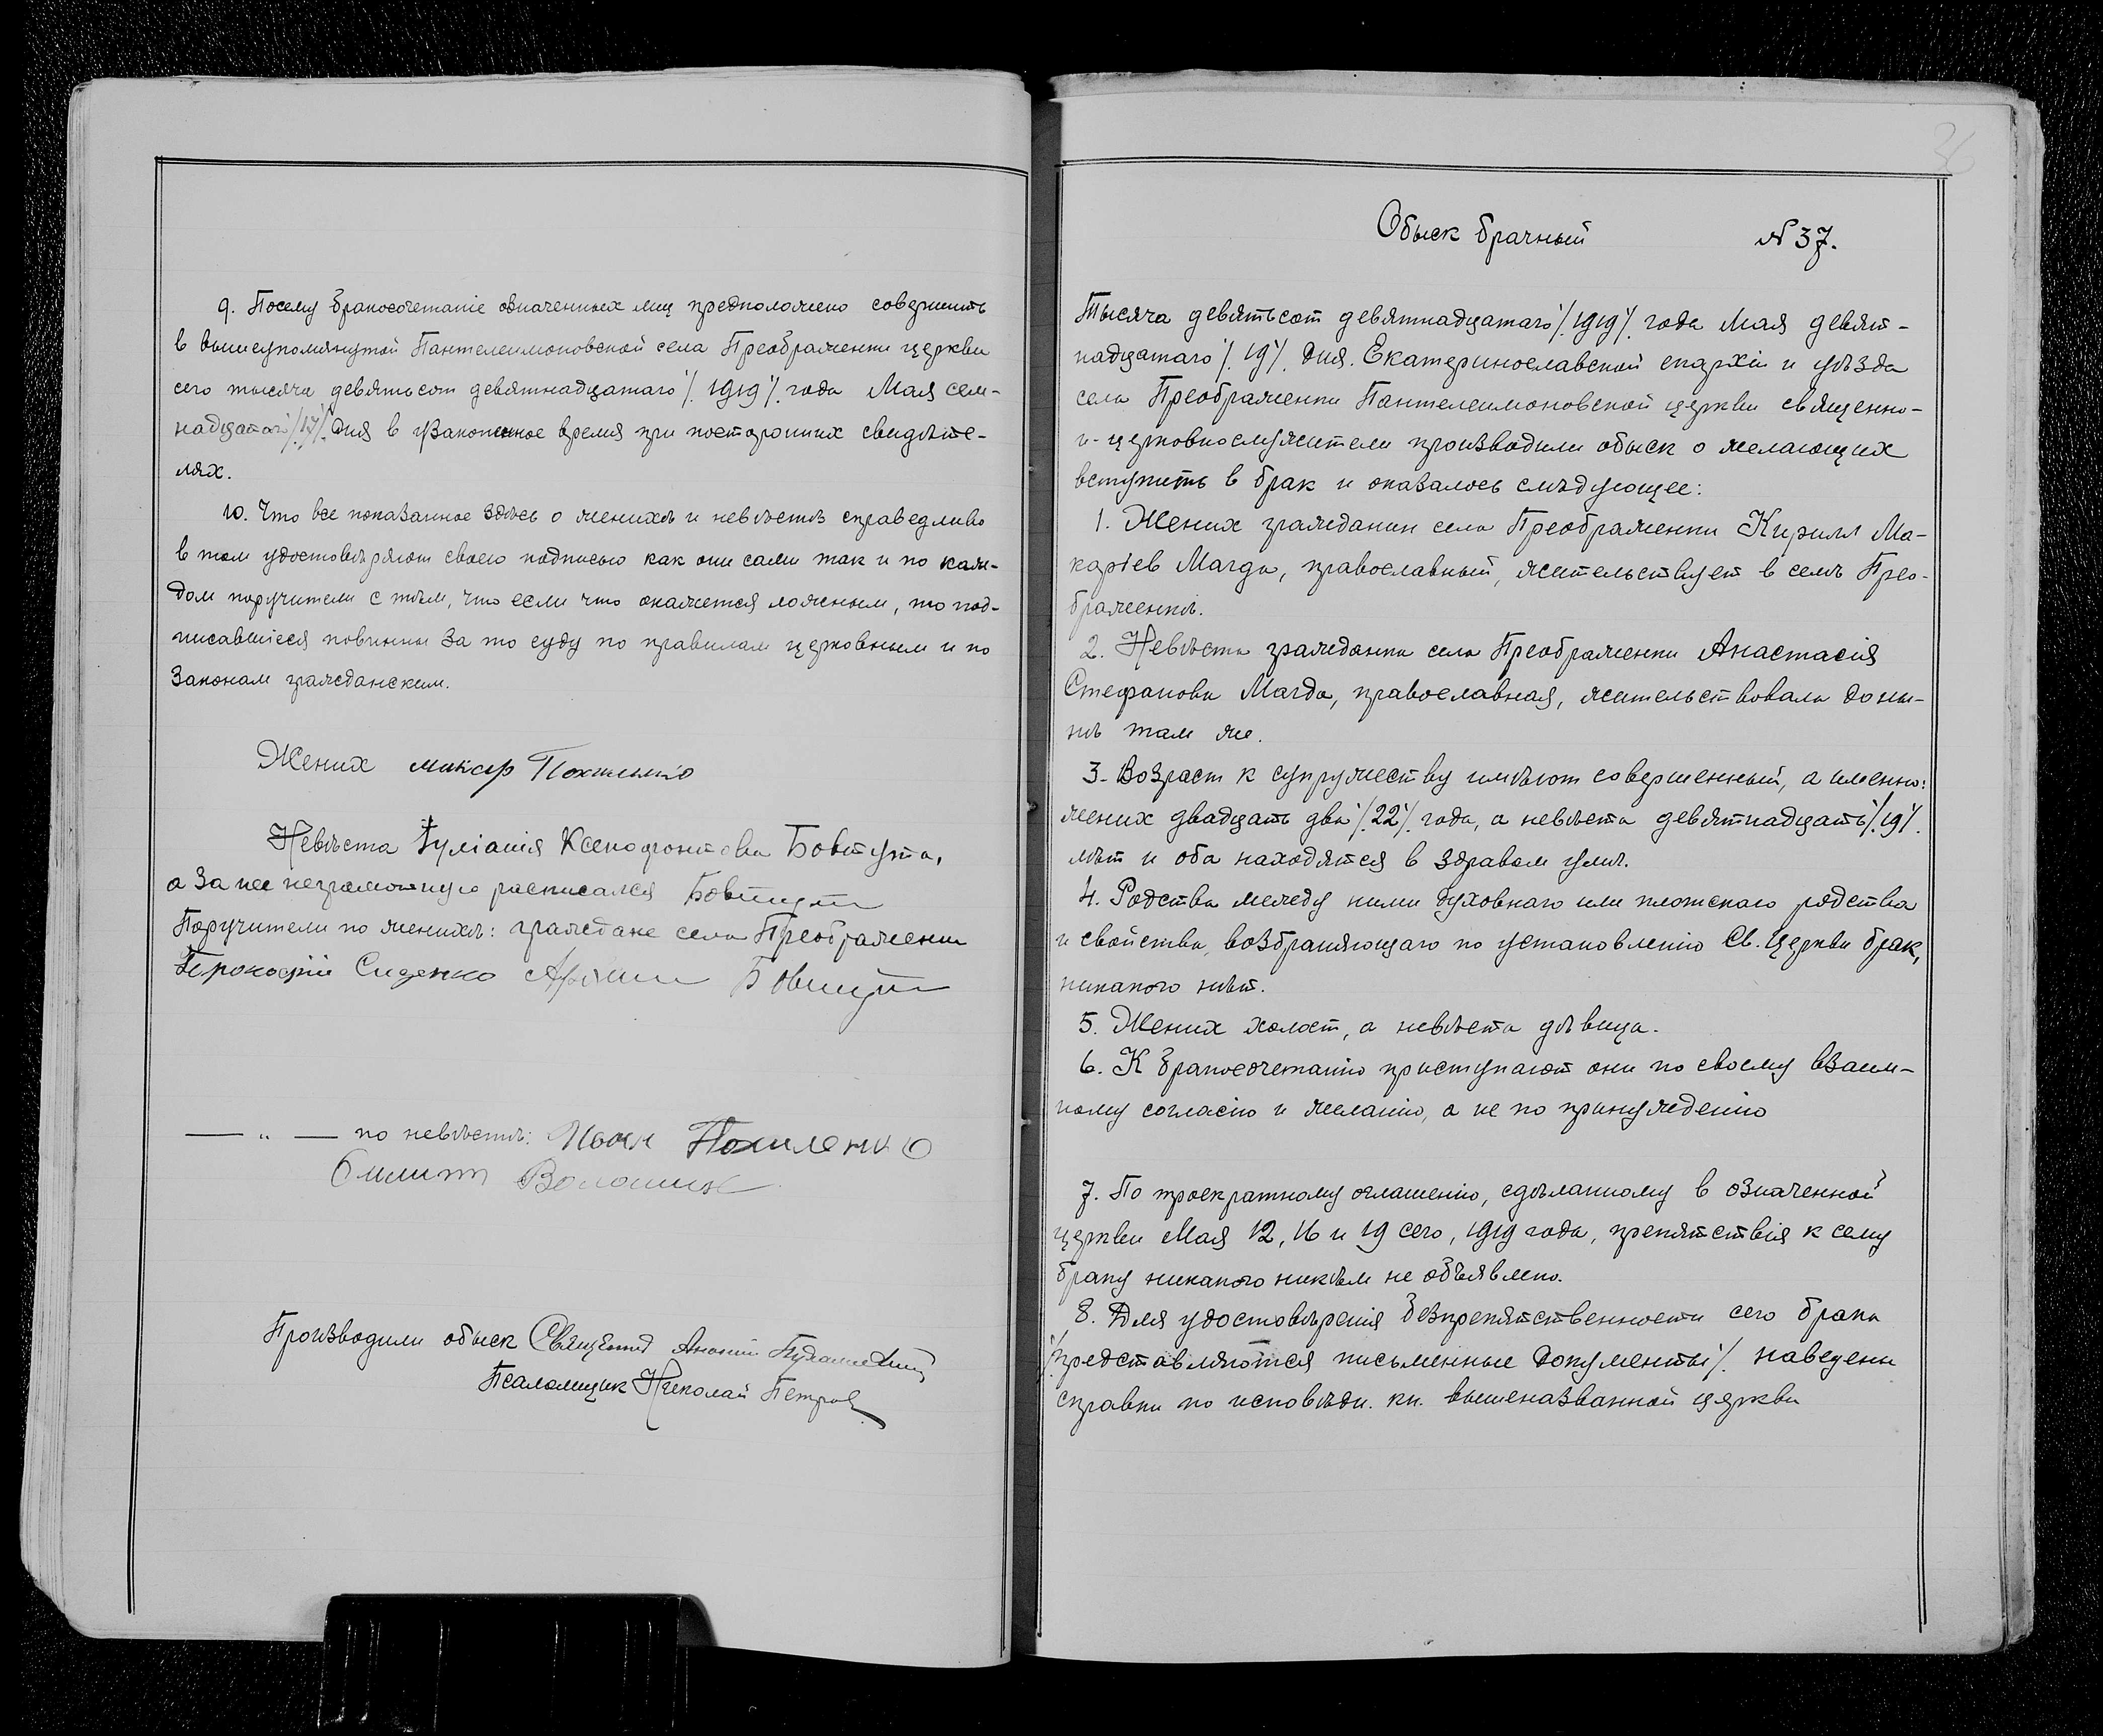 9. Посему бракосочетаніе означенных лиц предположено совершить
в вышеупомянутой Пантелеимоновской села Преображенки церкви
сего тысяча девятьсот девятнадцатаго /.1919/. года Мая сем-
надцатаго /.17/. дня в узаконенное время при посторонних свидѣте-
лях.
10. Что все показанное здѣсь о женихѣ и невѣстѣ справедливо
в том удостовѣряют своею подписью как они сами так и по каж-
дом поручители с тѣм, что если что окажется ложным, то под-
писавшіеся повинны за то суду по правилам церковным и по
законам гражданским.
Жених Макар
Невѣста Іуліанія Ксенофонтова Бовтута,
а за нее неграмотную расписался
Поручители по женихѣ: граждане села Преображенки
Прокофій Сиденко
— „ — по невѣстѣ: Иван
Производили обыск Священник
Псаломщик Николай Петров
36
Обыск брачный № 37.
Тысяча девятьсот девятнадцатаго /.1919/. года Мая девят-
надцатаго /.19/. дня. Екатеринославской епархіи и уѣзда
села Преображенки Пантелеимоновской церкви священно-
и-церковнослужители производили обыск о желающих
вступить в брак и оказалось слѣдующее:
1. Жених гражданин села Преображенки Кирилл Ма-
каріев Магда, православный, жительствует в селѣ Прео-
браженкѣ.
2. Невѣста гражданка села Преображенки Анастасія
Стефанова Магда, православная, жительствовала доны-
нѣ там же.
3. Возраст к супружеству имѣют совершенный, а именно:
жених двадцать два /.22/. года, а невѣста девятнадцать /.19/.
лѣт и оба находятся в здравом умѣ.
4. Родства между ними духовнаго или плотскаго родства
и свойства, возбраняющаго по установленію Св. Церкви брак,
никакого нѣт.
5. Жених холост, а невѣста дѣвица.
6. К бракосочетанію приступают они по своему взаим-
ному согласію и желанію, а не по принужденію
7. По троекратному оглашенію, сдѣланному в означенной
церкви Мая 12, 16 и 19 сего, 1919 года, препятствія к сему
браку никакого никѣм не объявлено.
8. Для удостовѣренія безпрепятственности сего брака
/.представляются письменные документы/. наведены
справки по исповѣдн. кн. вышеназванной церкви